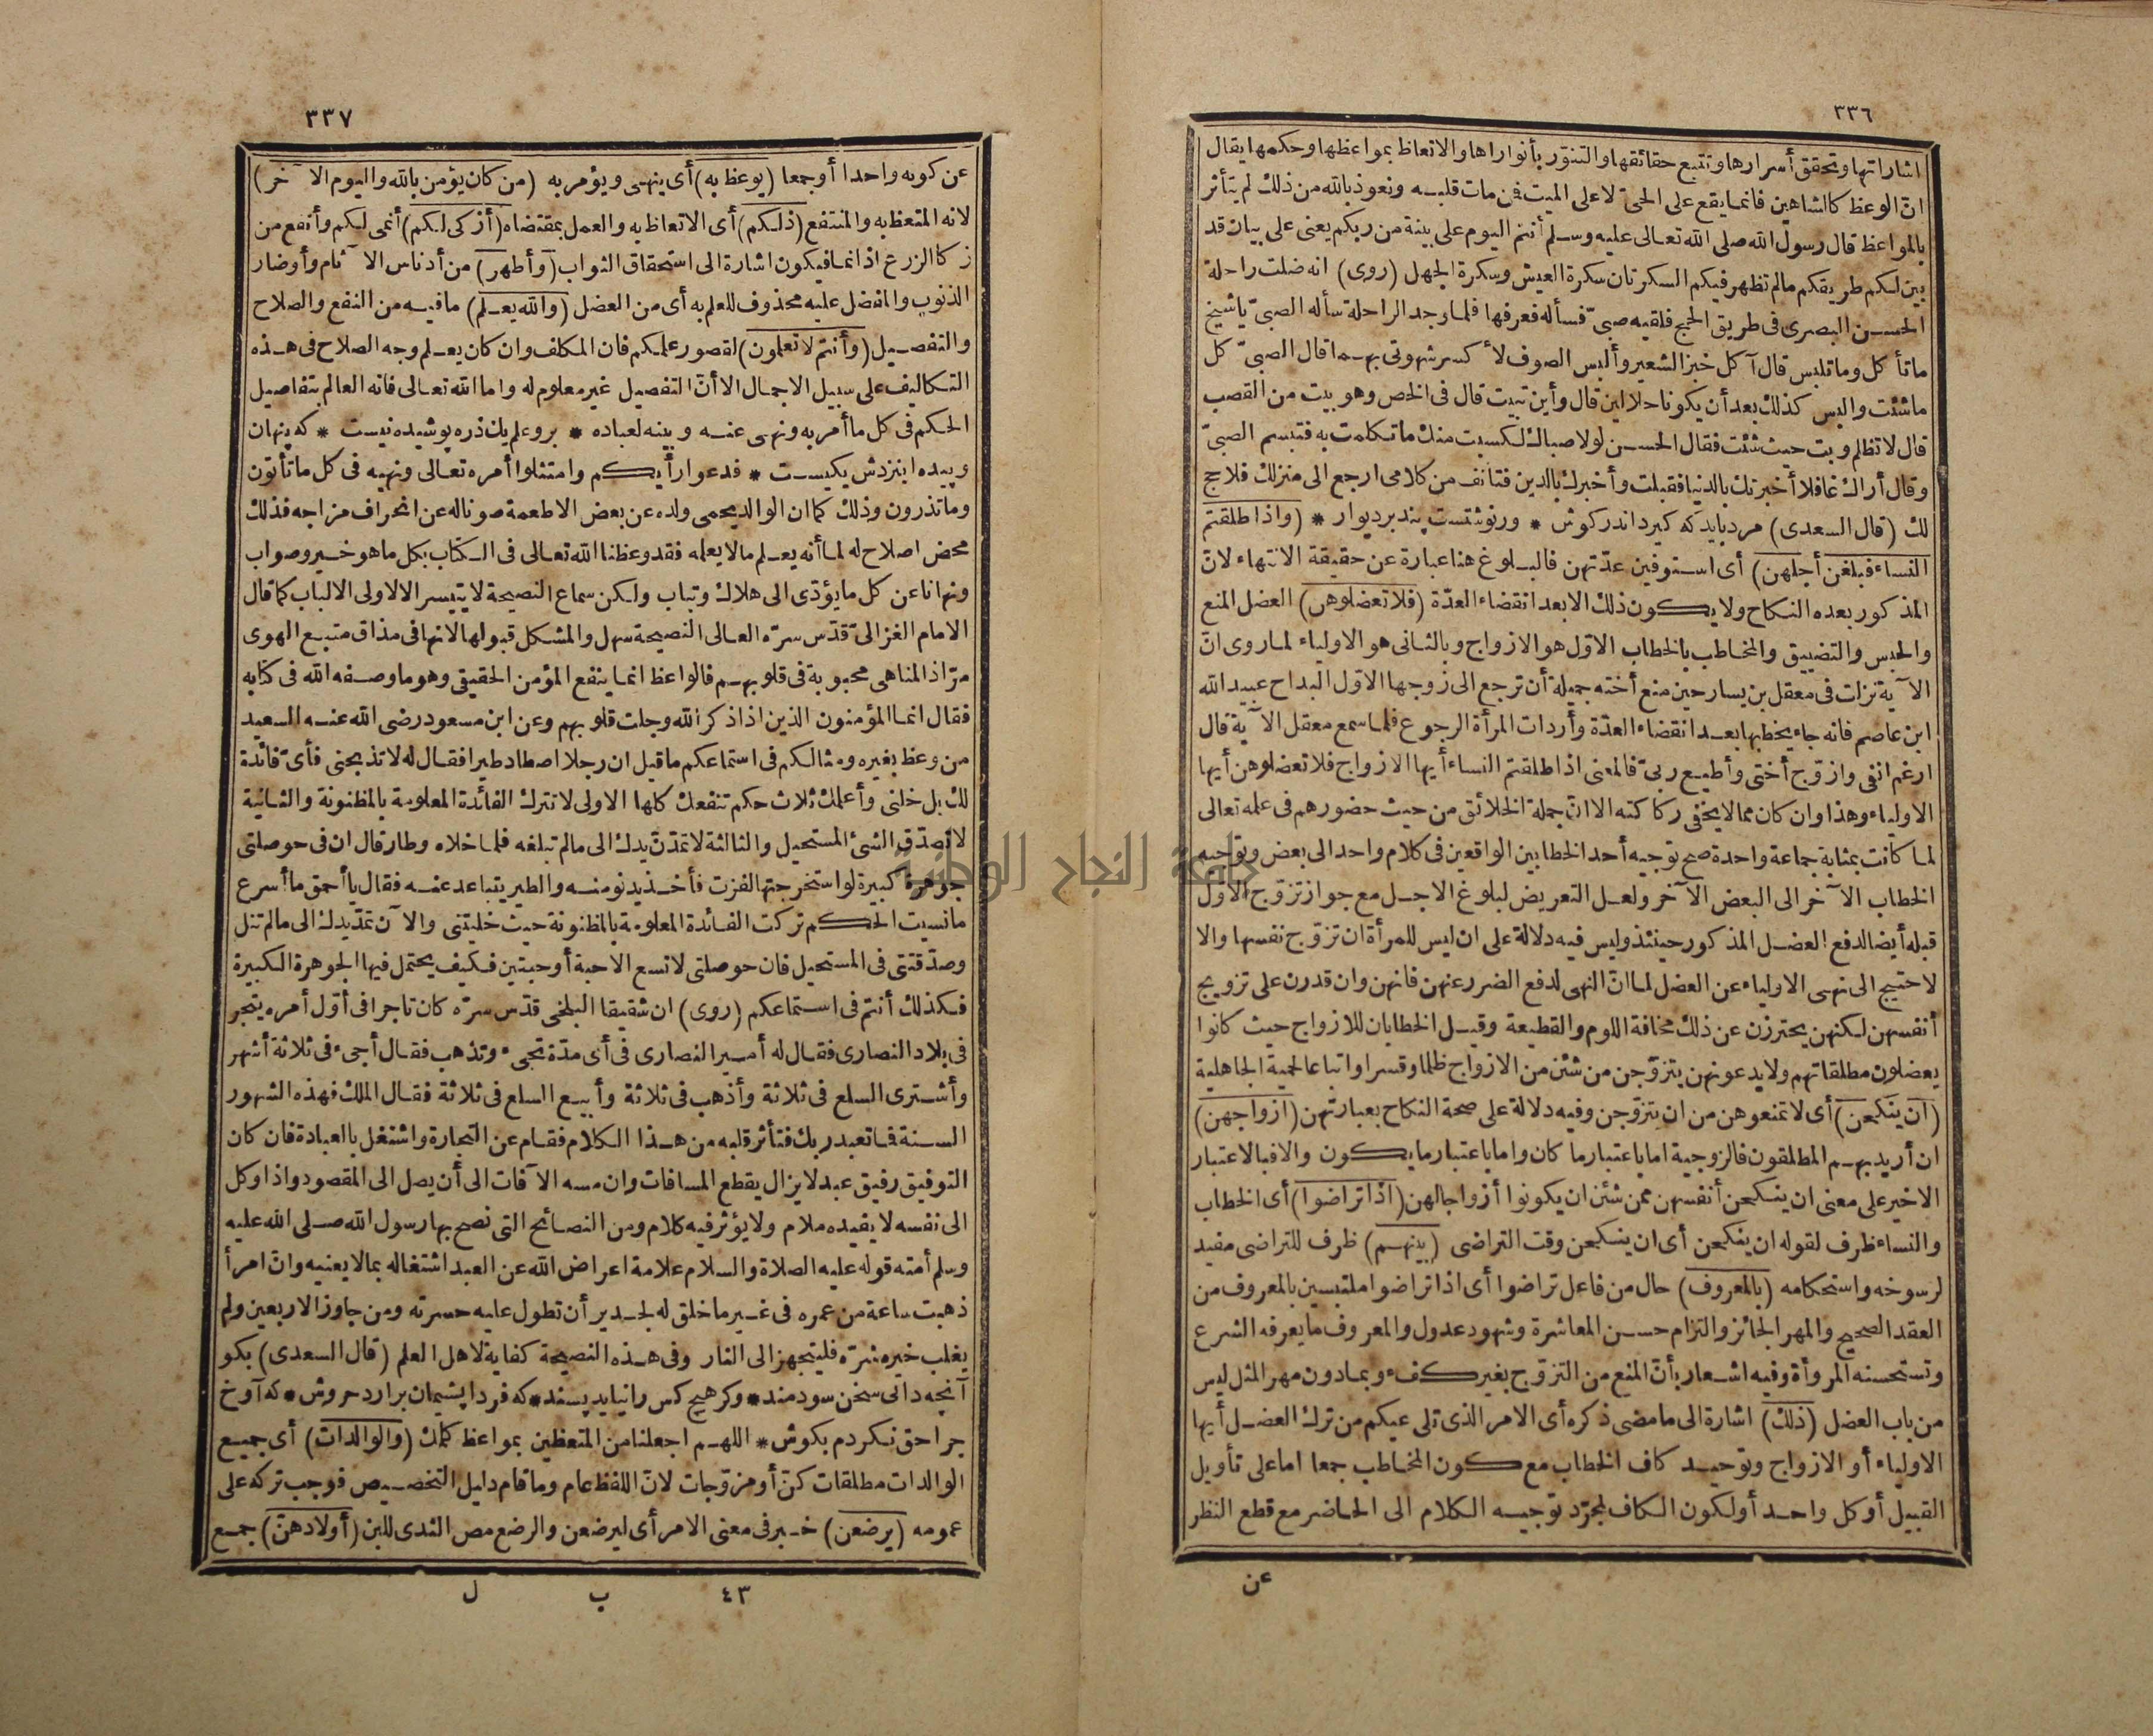 ٣٣٦
اشاراتها وتحقق أسرارها وتتبع حقائقها والتنوّر بأنوارها والاتعاظ بمواعظها وحكمها يقال
انّ الوعظ كالشاهين فانما يقع على الحىّ لا على الميت فمن مات قلبه ونعوذ بالله من ذلك لم يتأثر
بالمواعظ قال رسول الله صلى الله تعالى عليه وسلم أنتم اليوم على بينة من ربكم يعنى على بيان قد
بين لكم طريقكم مالم تظهر فيكم السكرتان سكرة العيش وسكرة الجهل (روى) انه ضلت راحلة
الحسن البصرى فى طريق الحج فلقيه صبىّ فسأله فعرفها فلما وجد الراحلة سأله الصبىّ يا شيخ
ما تأكل وما تلبس قال آكل خبز الشعير وألبس الصوف لأكسر شهوتى بهما قال الصبىّ كل
ما شئت والبس كذلك بعد أن يكونا حلالين قال وأين تبيت قال فى الخص وهو بيت من القصب
قال لا تظلم وبت حيث شئت فقال الحسن لولا صباك لكسبت منك ما تكلمت به فتبسم الصبىّ
وقال أراك غافلا أخبرتك بالدنيا فقبلت وأخبرك بالدين فتأنف من كلامى ارجع الى منزلك فلا حج
لك (قال السعدى) مرد بايد كه كيرد اندر كوش * ور نوشتست پند بر ديوار * (واذا طلقتم
النساء فبلغن أجلهن) أى استوفين عدّتهن فالبلوغ هنا عبارة عن حقيقة الانتهاء لانّ
المذكور بعده النكاح ولا يكون ذلك الا بعد انقضاء العدّة (فلا تعضلوهن) العضل المنع
والحبس والتضييق والمخاطب بالخطاب الاوّل هو الازواج وبالثانى هو الاولياء لما روى انّ
الآية نزلت فى معقل بن يسار حين منع أخته جميلة أن ترجع الى زوجها الاوّل البداح عبيد الله
ابن عاصم فانه جاء يخطبها بعد انقضاء العدّة وأردات المرأة الرجوع فلما سمع معقل الآية قال
ارغم انفى وازوّج أختى وأطيع ربىّ فالمعنى اذا طلقتم النساء أيها الازواج فلا تعضلوهن أيها
الاولياء وهذا وان كان مما لا يخفى ركاكته الا انّ جملة الخلائق من حيث حضورهم فى علمه تعالى
لما كانت بمثابة جماعة واحدة صح توجيه أحد الخطابين الواقعين فى كلام واحد الى بعض وتوجيه
الخطاب الآخر الى البعض الآخر ولعل التعريض لبلوغ الاجل مع جواز تزوّج الاوّل
قبله أيضا لدفع العضل المذكور حينئذ وليس فيه دلالة على ان ليس للمرأة ان تزوّج نفسها والا
لاحتيج الى نهى الاولياء عن العضل لما انّ النهى لدفع الضرر عنهن فانهن وان قدرن على تزويج
أنفسهن لكنهن يحترزن عن ذلك مخافة اللوم والقطيعة وقيل الخطابان للازواج حيث كانوا
يعضلون مطلقاتهم ولا يدعونهن يتزوّجن من شئن من الازواج ظلما وقسرا واتباعا لحمية الجاهلية
(ان ينكحن) أى لا تمنعوهن من ان يتزوّجن وفيه دلالة على صحة النكاح بعبارتهن (ازواجهن)
ان أريد بهم المطلقون فالزوجية اما باعتبار ما كان واما باعتبار ما يكون والا فبالاعتبار
الاخير على معنى ان ينكحن أنفسهن ممن شئن ان يكونوا أزواجا لهن (اذا تراضوا) أى الخطاب
والنساء ظرف لقوله ان ينكحن أى ان ينكحن وقت التراضى (بينهم) ظرف للتراضى مفيد
لرسوخه واستحكامه (بالمعروف) حال من فاعل تراضوا أى اذا تراضوا ملتبسين بالمعروف من
العقد الصحيح والمهر الجائز والتزام حسن المعاشرة وشهود عدول والمعروف ما يعرفه الشرع
وتستحسنه المروأة وفيه اشعار بأنّ المنع من التزوّج بغير كفء وبما دون مهر المثل ليس
من باب العضل (ذلك) اشارة الى ما مضى ذكره أى الامر الذى تلى عيكم من ترك العضل أيها
الاولياء أو الازواج وتوحيد كاف الخطاب مع كون المخاطب جمعا اما على تأويل
القبيل أو كل واحد أولكون الكاف لمجرّد توجيه الكلام الى الحاضر مع قطع النظر
عن
٣٣٧
عن كونه واحدا أو جمعا (يوعظ به) أى ينهى ويؤمر به (من كان يؤمن بالله واليوم الآخر)
لانه المتعظ به والمنتفع (ذلكم) أى الاتعاظ به والعمل بمقتضاه (أزكى لكم) أنمى لكم وأنفع من
زكا الزرع اذا نما فيكون اشارة الى استحقاق الثواب (وأطهر) من أدناس الآثام وأوضار
الذنوب والمفضل عليه محذوف للعلم به أى من العضل (والله يعلم) ما فيه من النفع والصلاح
والتفصيل (وأنتم لا تعلمون) لقصور علمكم فان المكلف وان كان يعلم وجه الصلاح فى هذه
التكاليف على سبيل الاجمال الا أنّ التفصيل غير معلوم له واما الله تعالى فانه العالم بتفاصيل
الحكم فى كل ما أمر به ونهى عنه وبينه لعباده * برو علم يك ذره پوشيده نيست * كه پنهان
وپيدا بنزدش يكيست * فدعوا رأيكم وامتثلوا أمره تعالى ونهيه فى كل ما تأتون
وما تذرون وذلك كما ان الوالد يحمى ولده عن بعض الاطعمة صونا له عن انحراف مزاجه فذلك
محض اصلاح له لما أنه يعلم مالا يعلمه فقد وعظنا الله تعالى فى الكتاب بكل ما هو خير وصواب
ونهانا عن كل ما يؤدّى الى هلاك وتباب ولكن سماع النصيحة لا يتيسر الا لاولى الالباب كما قال
الامام الغزالىّ قدّس سرّه العالى النصيحة سهل والمشكل قبولها لانها فى مذاق متبع الهوى
مرّ اذ المناهى محبوبة فى قلوبهم فالواعظ انما ينفع المؤمن الحقيقى وهو ما وصفه الله فى كتابه
فقال انما المؤمنون الذين اذا ذكر الله وجلت قلوبهم وعن ابن مسعود رضى الله عنه السعيد
من وعظ بغيره ومثالكم فى استماعكم ما قيل ان رجلا اصطاد طيرا فقال له لا تذبحنى فأىّ فائدة
لك بل خلنى وأعلمك ثلاث حكم تنفعك كلها الاولى لا تترك الفائدة المعلومة بالمظنونة والثانية
لا تصدّق الشئ المستحيل والثالثة لا تمدّنّ يدك الى مالم تبلغه فلما خلاه وطار قال ان فى حوصلتى
جوهرة كبيرة لو استخرجتها لفزت فأخذ يدنو منه والطير يتباعد عنه فقال يا أحمق ما أسرع
ما نسيت الحكم تركت الفائدة المعلومة بالمظنونة حيث خليتنى والآن تمدّ يدك الى مالم تنل
وصدّقتنى فى المستحيل فان حوصلتى لا تسع الا حبة أو حبتين فكيف يحتمل فيها الجوهرة الكبيرة
فكذلك أنتم فى استماعكم (روى) ان شقيقا البلخى قدّس سرّه كان تاجرا فى أوّل أمره يتجر
فى بلاد النصارى فقال له أمير النصارى فى أى مدّة تجىء وتذهب فقال أجىء فى ثلاثة أشهر
وأشترى السلع فى ثلاثة وأذهب فى ثلاثة وأبيع السلع فى ثلاثة فقال الملك فهذه الشهور
السنة فما تعبد ربك فتأثر قلبه من هذا الكلام فقام عن التجارة واشتغل بالعبادة فان كان
التوفيق رفيق عبد لا يزال يقطع المسافات وان مسه الآفات الى أن يصل الى المقصود واذا وكل
الى نفسه لا يفيده ملام ولا يؤثر فيه كلام ومن النصائح التى نصح بها رسول الله صلى الله عليه
وسلم أمته قوله عليه الصلاة والسلام علامة اعراض الله عن العبد اشتغاله بما لا يعنيه وانّ امرأ
ذهبت ساعة من عمره فى غير ما خلق له لجدير أن تطول عليه حسرته ومن جاوز الاربعين ولم
يغلب خيره شرّه فليتجهز الى النار وفى هذه النصيحة كفاية لاهل العلم (قال السعدى) بكو
آنچه دانى سخن سودمند * وكر هيچ كس را نيايد پسند * كه فردا پشيمان برارد خروش * كه آوخ
چرا حق نكردم بكوش * اللهم اجعلنا من المتعظين بمواعظ كتابك (والوالدات) أى جميع
الوالدات مطلقات كنّ أو مزوّجات لانّ اللفظ عام وما قام دليل التخصيص فوجب تركه على
عمومه (يرضعن) خبر فى معنى الامر أى ليرضعن والرضع مص الثدى للبن (أولادهنّ) جمع
٤٣ ب ل
جامعة النجاح الوطنية